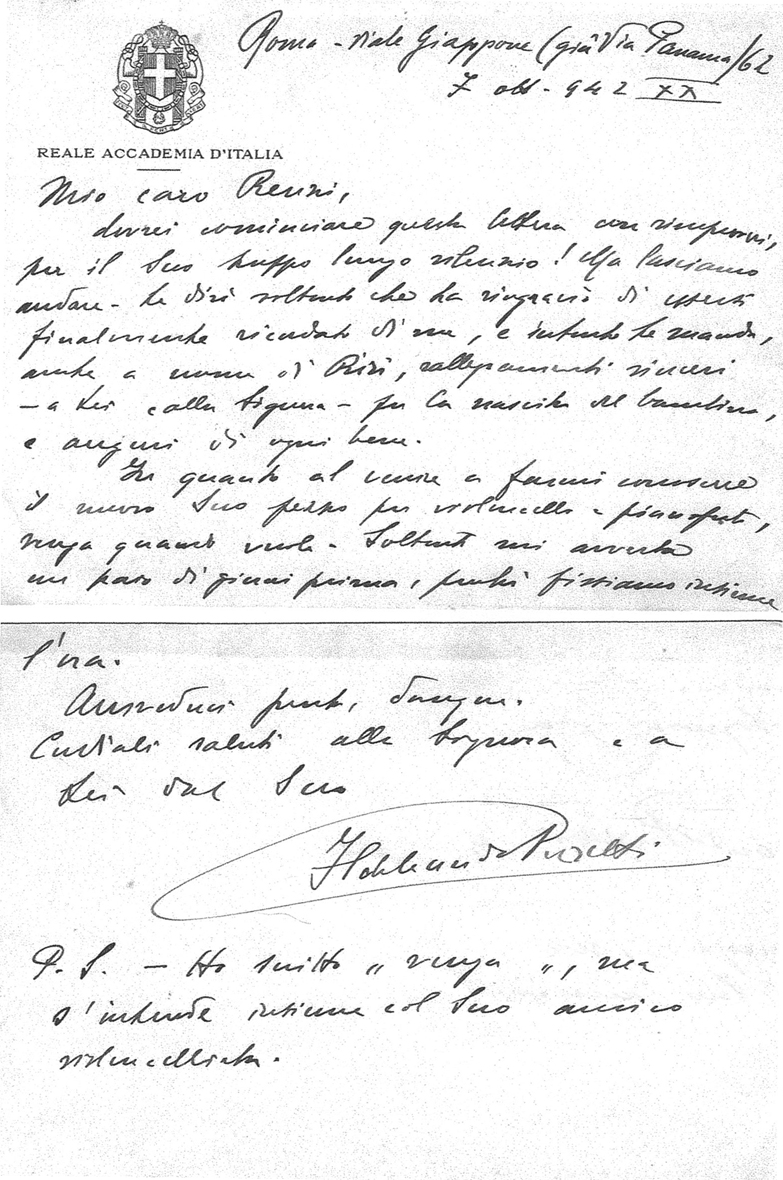 Roma - Viale Giappone (già Via Panama) / 62
7 ott. 942 XX
REALE ACCADEMIA D'ITALIA
Mio caro Renzi,
dovrei cominciare questa lettera con rimproveri,
per il Suo troppo lungo silenzio! Ma lasciamo
andare - Le dirò soltanto che la ringrazio di essersi
finalmente ricordato di me, e intanto Le mando,
anche a nome di Riri, rallegramenti sinceri
- a Lei e alla Signora - per la nascita del bambino,
e auguri di ogni bene.
In quanto al venire a farmi conoscere
il nuovo Suo pezzo per violoncello e pianoforte,
venga quando vuole - Soltanto mi avverta
un paio di giorni prima, perché fissiamo insieme
l'ora.
Arrivederci presto, dunque.
Cordiali saluti alla Signora e a
Lei dal Suo
Ildebrando Pizzetti
P. S. - Ho scritto „ venga „, ma
s'intende insieme col Suo amico
violoncellista.